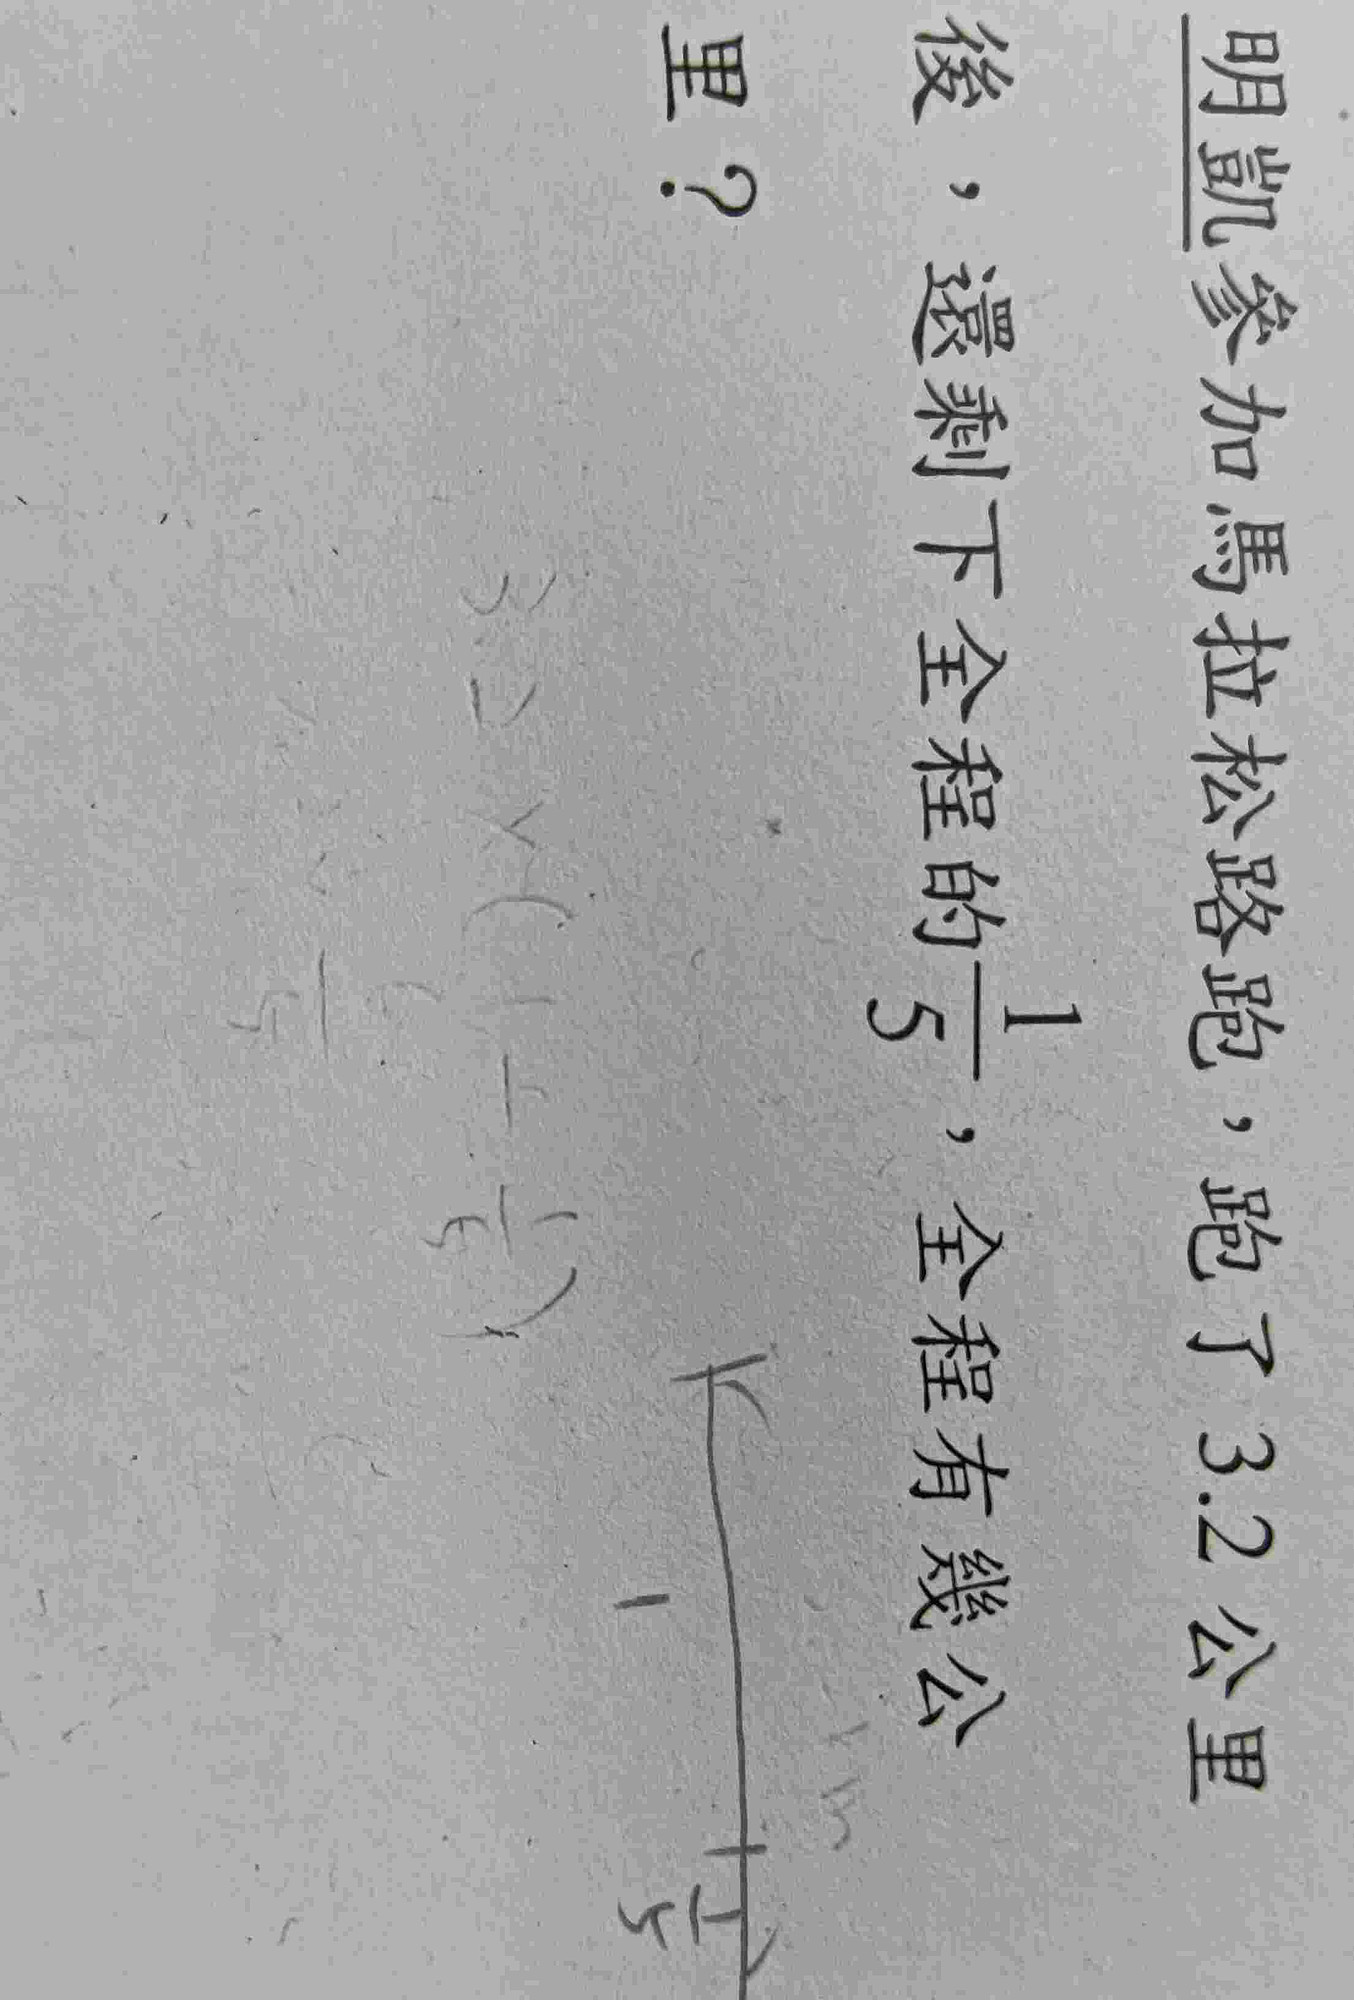 明凱參加馬拉松路跑，跑了3.2公里
後，還剩下全程的1/5，全程有幾公
里？
1
1/5
3.2×(1-1/5)